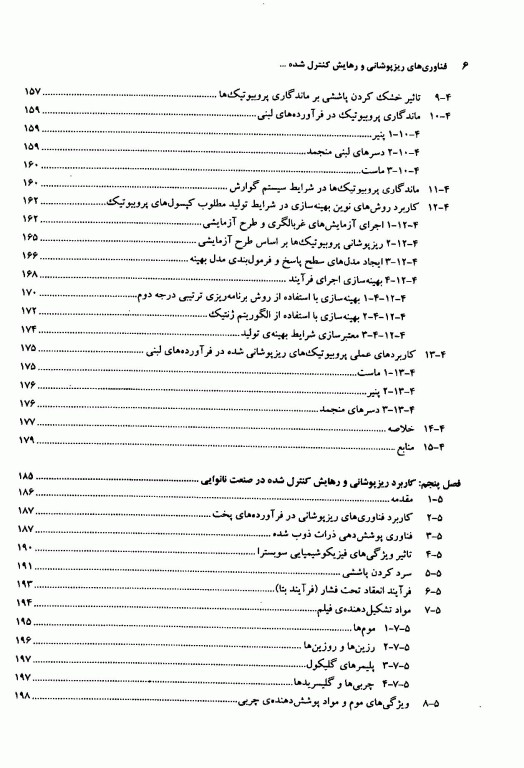 ۶ فناوری‌های ریزپوشانی و رهایش کنترل شده ...
۴-۹ تاثیر خشک کردن پاششی بر ماندگاری پروبیوتیک‌ها ۱۵۷
۴-۱۰ ماندگاری پروبیوتیک در فرآورده‌های لبنی ۱۵۹
۴-۱۰-۱ پنیر ۱۵۹
۴-۱۰-۲ دسرهای لبنی منجمد ۱۵۹
۴-۱۰-۳ ماست ۱۶۰
۴-۱۱ ماندگاری پروبیوتیک‌ها در شرایط سیستم گوارش ۱۶۰
۴-۱۲ کاربرد روش‌های نوین بهینه‌سازی در شرایط تولید مطلوب کپسول‌های پروبیوتیک ۱۶۲
۴-۱۲-۱ اجرای آزمایش‌های غربالگری و طرح آزمایشی ۱۶۲
۴-۱۲-۲ ریزپوشانی پروبیوتیک‌ها بر اساس طرح آزمایشی ۱۶۵
۴-۱۲-۳ ایجاد مدل‌های سطح پاسخ و فرمول‌بندی مدل بهینه ۱۶۶
۴-۱۲-۴ بهینه‌سازی اجرای فرآیند ۱۶۸
۴-۱۲-۴-۱ بهینه‌سازی با استفاده از روش برنامه‌ریزی ترتیبی درجه دوم ۱۷۰
۴-۱۲-۴-۲ بهینه‌سازی با استفاده از الگوریتم ژنتیک ۱۷۲
۴-۱۲-۴-۳ معتبرسازی شرایط بهینه‌ی تولید ۱۷۴
۴-۱۳ کاربردهای عملی پروبیوتیک‌های ریزپوشانی شده در فرآورده‌های لبنی ۱۷۵
۴-۱۳-۱ ماست ۱۷۵
۴-۱۳-۲ پنیر ۱۷۶
۴-۱۳-۳ دسرهای منجمد ۱۷۶
۴-۱۴ خلاصه ۱۷۷
۴-۱۵ منابع ۱۷۹
فصل پنجم: کاربرد ریزپوشانی و رهایش کنترل شده در صنعت نانوایی ۱۸۵
۵-۱ مقدمه ۱۸۶
۵-۲ کاربرد فناوری‌های ریزپوشانی در فرآورده‌های پخت ۱۸۷
۵-۳ فناوری پوشش‌دهی ذرات ذوب شده ۱۸۷
۵-۴ تاثیر ویژگی‌های فیزیکوشیمیایی سوبسترا ۱۹۰
۵-۵ سرد کردن پاششی ۱۹۱
۵-۶ فرآیند انعقاد تحت فشار (فرآیند بتا) ۱۹۳
۵-۷ مواد تشکیل‌دهنده‌ی فیلم ۱۹۴
۵-۷-۱ موم‌ها ۱۹۵
۵-۷-۲ رزین‌ها و روزین‌ها ۱۹۶
۵-۷-۳ پلیمرهای گلیکول ۱۹۷
۵-۷-۴ چربی‌ها و گلیسریدها ۱۹۷
۵-۸ ویژگی‌های موم و مواد پوشش‌دهنده‌ی چربی ۱۹۸